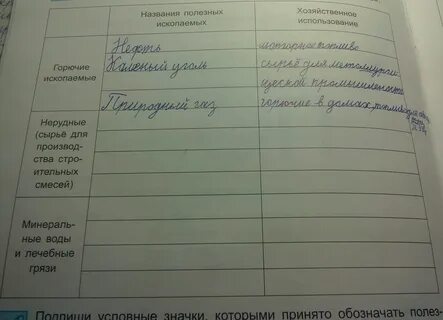 Названия полезных ископаемых
Хозяйственное использование
Горючие ископаемые
Нефть
моторное топливо
Каменый уголь
сырьё для металлурги
ческой промышлености
Природный газ
горючие в домах,
Нерудные (сырьё для производства строительных смесей)
Минеральные воды и лечебные грязи
Подпиши условные значки, которыми принято обозначать полез-